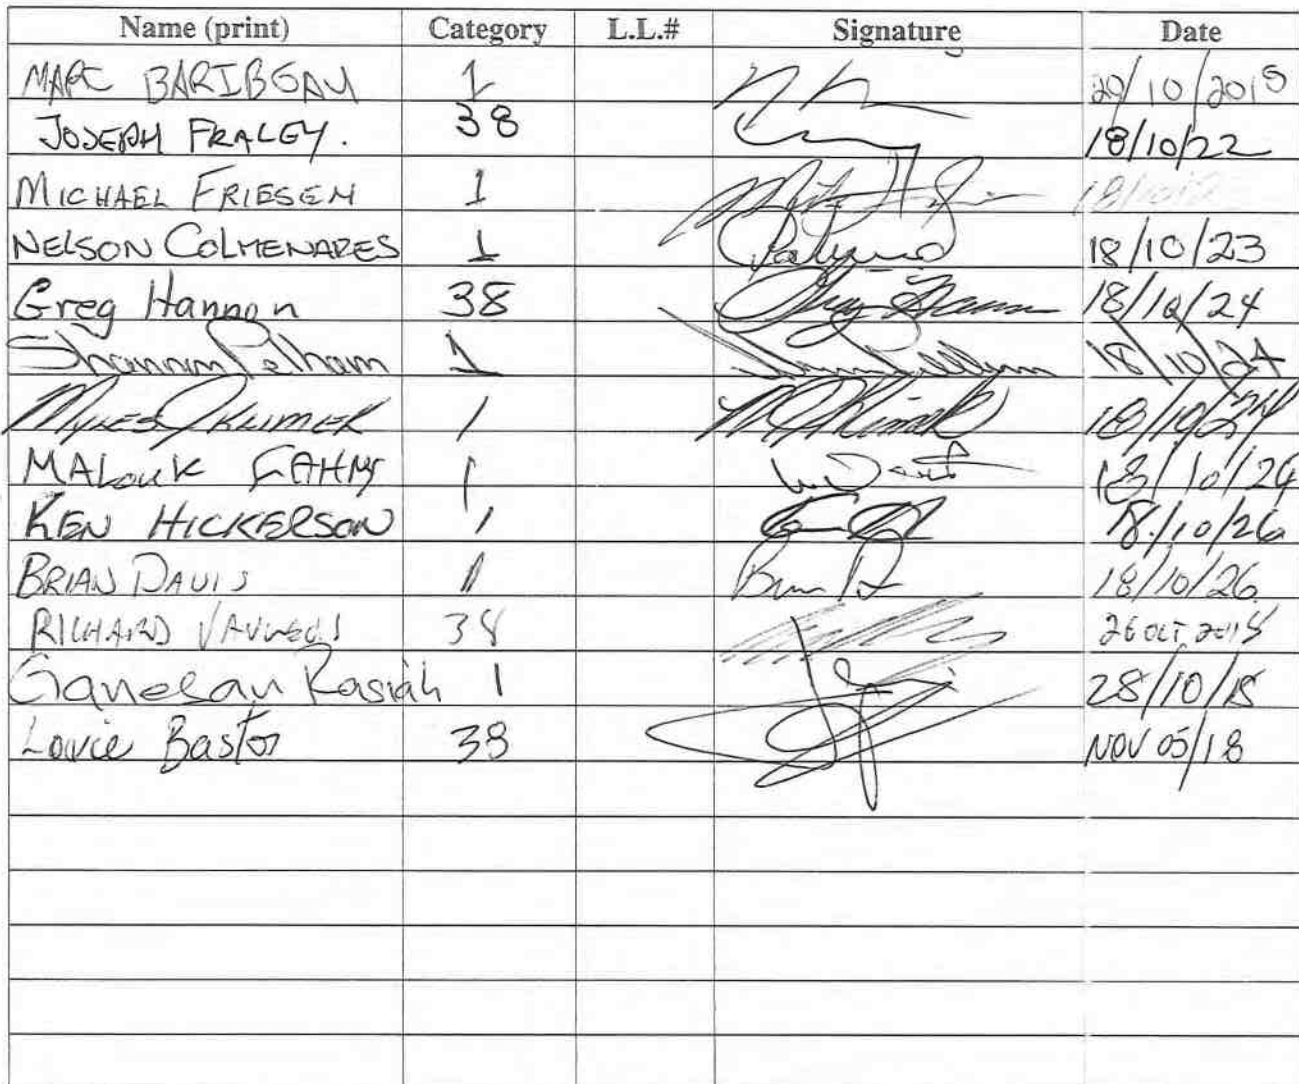 Name (print) Category L.L.# Signature Date
MARC BARIBEAU 1 29/10/2018
JOSEPH FRALEY. 38 18/10/22
MICHAEL FRIESEN 1 18/10/2
NELSON COLMENARES 1 18/10/23
Greg Hannon 38 18/10/24
Shannon Pelham 1 18/10/24
MYLES J KLIMEK 1 18/10/24
MALOUK FAHMY 1 18/10/24
KEN HICKERSON 1 18/10/26
BRIAN DAVIS 1 18/10/26
RICHARD 38 26 OCT 2018
Ganesan Rasiah 1 28/10/18
Lowie Bastor 38 NOV 05/18